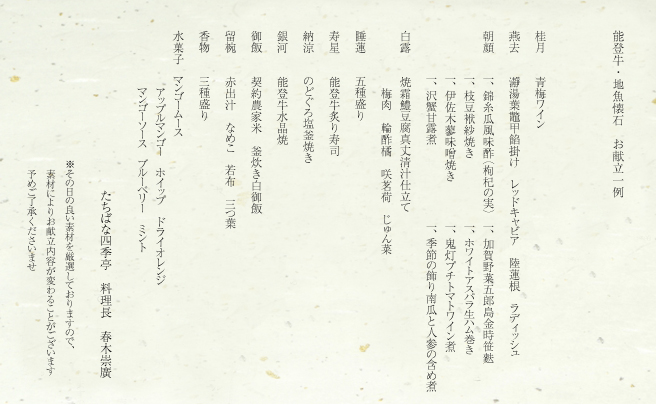 能登牛・地魚懐石　お献立一例
桂月　青梅ワイン
燕去　瀞湯葉鼈甲餡掛け　レッドキャビア　陸蓮根　ラディッシュ
朝顔　一、錦糸瓜風味酢(枸杞の実)　一、加賀野菜五郎島金時笹麩
一、枝豆袱紗焼き　一、ホワイトアスパラ生ハム巻き
一、伊佐木蓼味噌焼き　一、鬼灯プチトマトワイン煮
一、沢蟹甘露煮　一、季節の飾り南瓜と人参の含め煮
白露　焼霜鱧豆腐真丈清汁仕立て
梅肉　輪酢橘　咲茗荷　じゅん菜
睡蓮　五種盛り
寿星　能登牛炙り寿司
納涼　のどぐろ塩釜焼き
銀河　能登牛水晶焼
御飯　契約農家米　釜炊き白御飯
留椀　赤出汁　なめこ　若布　三つ葉
香物　三種盛り
水菓子　マンゴームース
アップルマンゴー　ホイップ　ドライオレンジ
マンゴーソース　ブルーベリー　ミント
たちばな四季亭　料理長　春木崇廣
※その日の良い素材を厳選しておりますので、
素材によりお献立内容が変わることがございます
予めご了承くださいませ